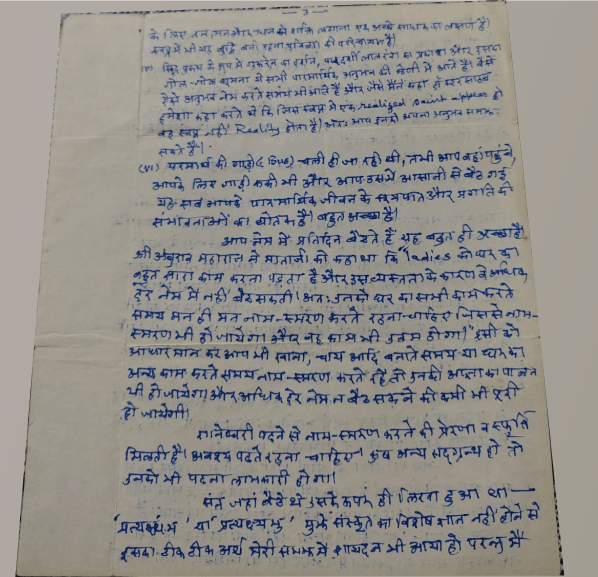 - 3 -
के लिए तन, मन और धन की शक्ति लगाना एक अच्छे साधक का लक्षण है।
स्वप्न में भी यह बुद्धि बनी रहना पवित्रता की परिचायक है।
प्रकाश के रूप में गुरूदेव का दर्शन, लाल रंग का प्रकाश और इसका
गोल-गोल घूमना ये सभी पारमार्थिक अनुभव की श्रेणी में आते हैं। वैसे
ऐसे अनुभव नेम करते समय भी आते हैं और जैसे मैंने कहा
हमेशा कहा करते थे कि जिस स्वप्न में एक realized saint appear हो
वह स्वप्न नहीं Reality होता है। अतः आप इनको अपना अनुभव समझ
सकते हैं।
(vi) परमार्थ की गाड़ी चली ही जा रही थी, तभी आप वहां पहुंचे,
आपके लिए गाड़ी रुकी भी और आप उसमें आसानी से बैठ गई
यह सब आपके पारमार्थिक जीवन के और प्रगति की
संभावनाओं का द्योतक है। बहुत अच्छा है।
आप नेम में प्रतिदिन बैठते हैं यह बहुत ही अच्छा है।
श्री अंबुराव महाराज ने माताजी को कहा था कि "ladies को घर का
बहुत सारा काम करना पड़ता है और इस व्यस्तता के कारण वे अधिक
देर नेम में नहीं बैठ सकती। अतः उनको घर का सभी काम करते
समय मन ही मन नाम-स्मरण करते रहना चाहिए जिससे नाम-
स्मरण भी हो जायेगा और वह काम भी उत्तम होगा।" इसी को
आधार मान कर आप भी खाना, चाय आदि बनाते समय या घर का
अन्य काम करते समय नाम-स्मरण करते रहें तो उनकी आज्ञा का पालन
भी हो जायेगा और अधिक देर नेम न बैठ सकने की कमी भी पूरी
हो जायेगी।
ज्ञानेश्वरी पढ़ने से नाम-स्मरण करने की प्रेरणा व स्फूर्ति
मिलती है। अवश्य पढ़ते रहना चाहिए। कुछ अन्य सद्ग्रन्थ हो तो
उनको भी पढ़ना लाभकारी होगा।
संत जहां बैठे थे उसके ऊपर ही लिखा हुआ था —
या मुझे संस्कृत का विशेष ज्ञान नहीं होने से
इसका ठीक ठीक अर्थ मेरी समझ में शायद न भी आया हो परन्तु मैं